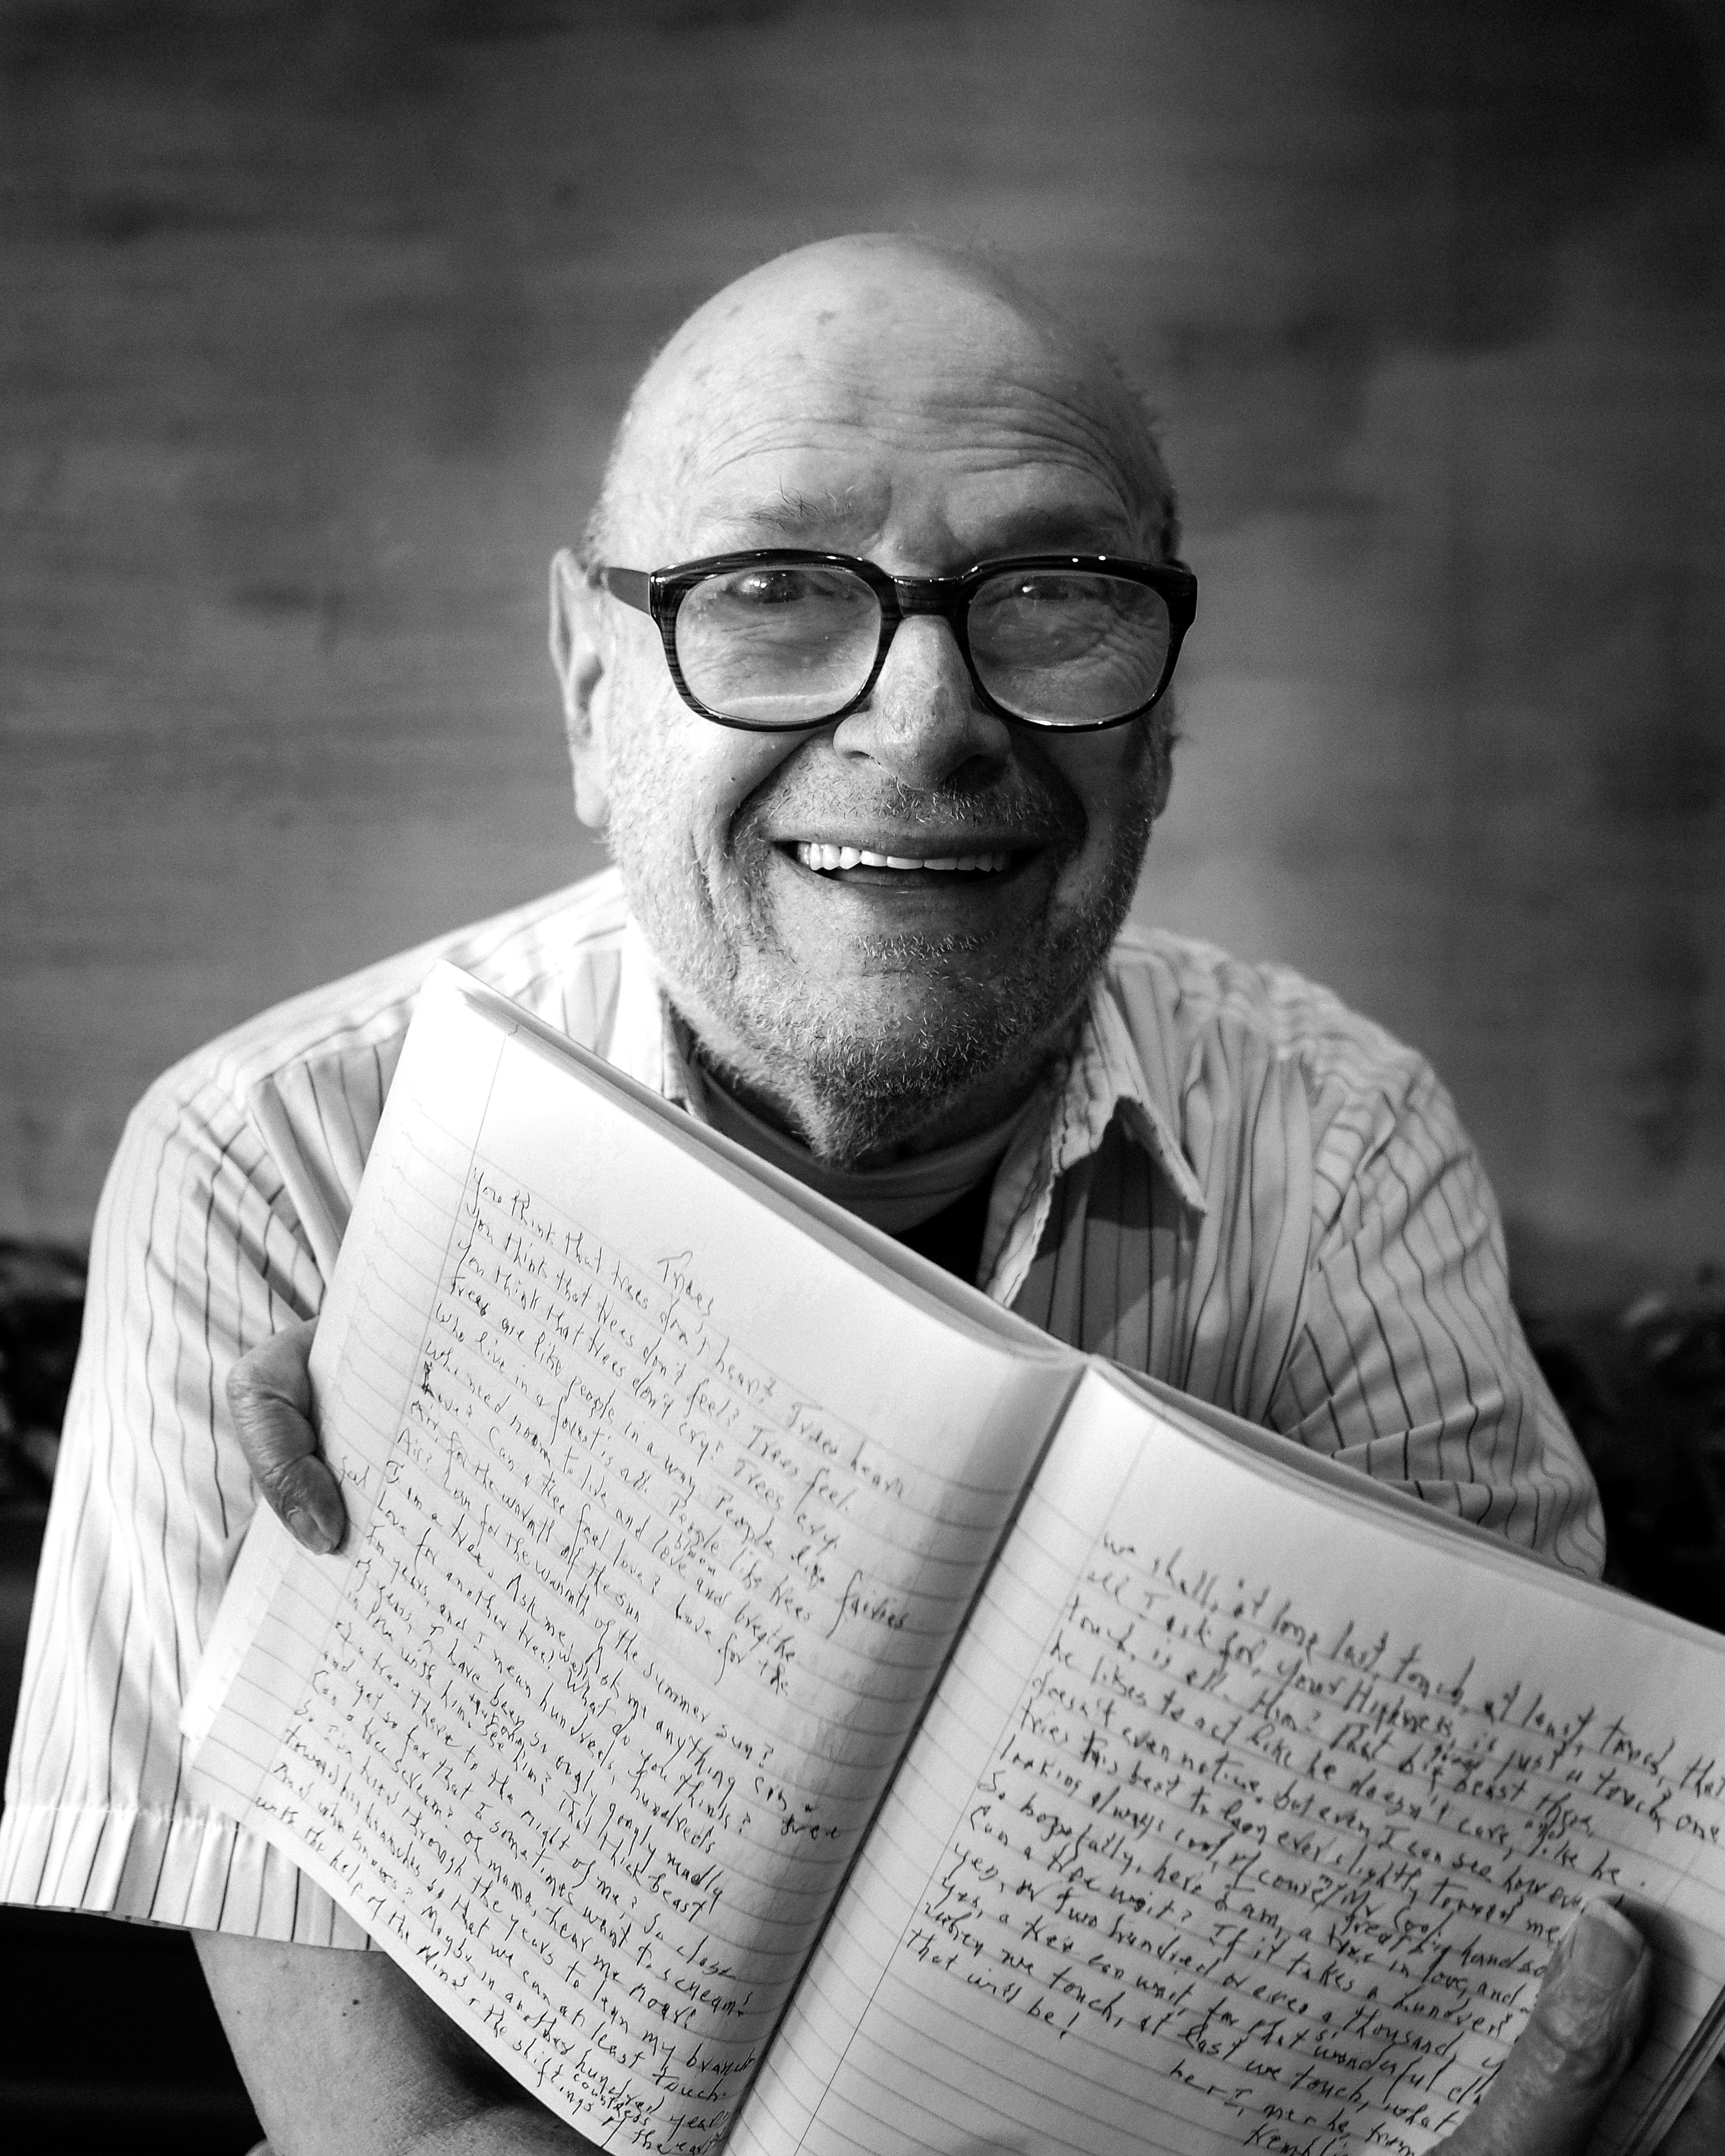 Trees
You think that trees don't hear? Trees hear.
You think that trees don't feel? Trees feel.
You think that trees don't cry? Trees cry.
Trees are like people in a way. People, like fairies
who live in a forest is all. People like trees
who need room to live and bloom love and breathe
Love? Can a tree feel love? Love for the
air, for the warmth of the sun
Air? Love for the warmth of the summer sun?
I am a tree. Ask me. Ask me anything
feel Love for another tree? What do you think?
I'm years, and I mean hundreds, hundreds
of years, I have been so madly
in love with him. See him? That thick beast
of a tree there to the right of me? So close
and yet so far that I sometimes want to scream!
Can a tree scream? Oh mama, hear me roar!
So I've tried through the years to lean my branches
toward his branches so that we can at least touch.
And who knows? Maybe in another hundred years
with the help of the wind & the countless shiftings of the earth
we shall, at long last, touch, at least, touch, that
all I ask for, your Highness, is just a touch, one
touch, is all. Him? That big beast there,
he likes to act like he doesn't care, like he
doesn't even notice, but even I can see how
tries his best to lean ever slightly toward me,
looking always cool, of course, Mr Cool
So hopefully, here I am, a great big tree in love, and
Can a tree wait? If it takes a hundred
yes, or two hundred or even a thousand,
Yes, a tree can wait, for that wonderful
when we touch, at last we touch, what
that will be!
her I, me & he, from